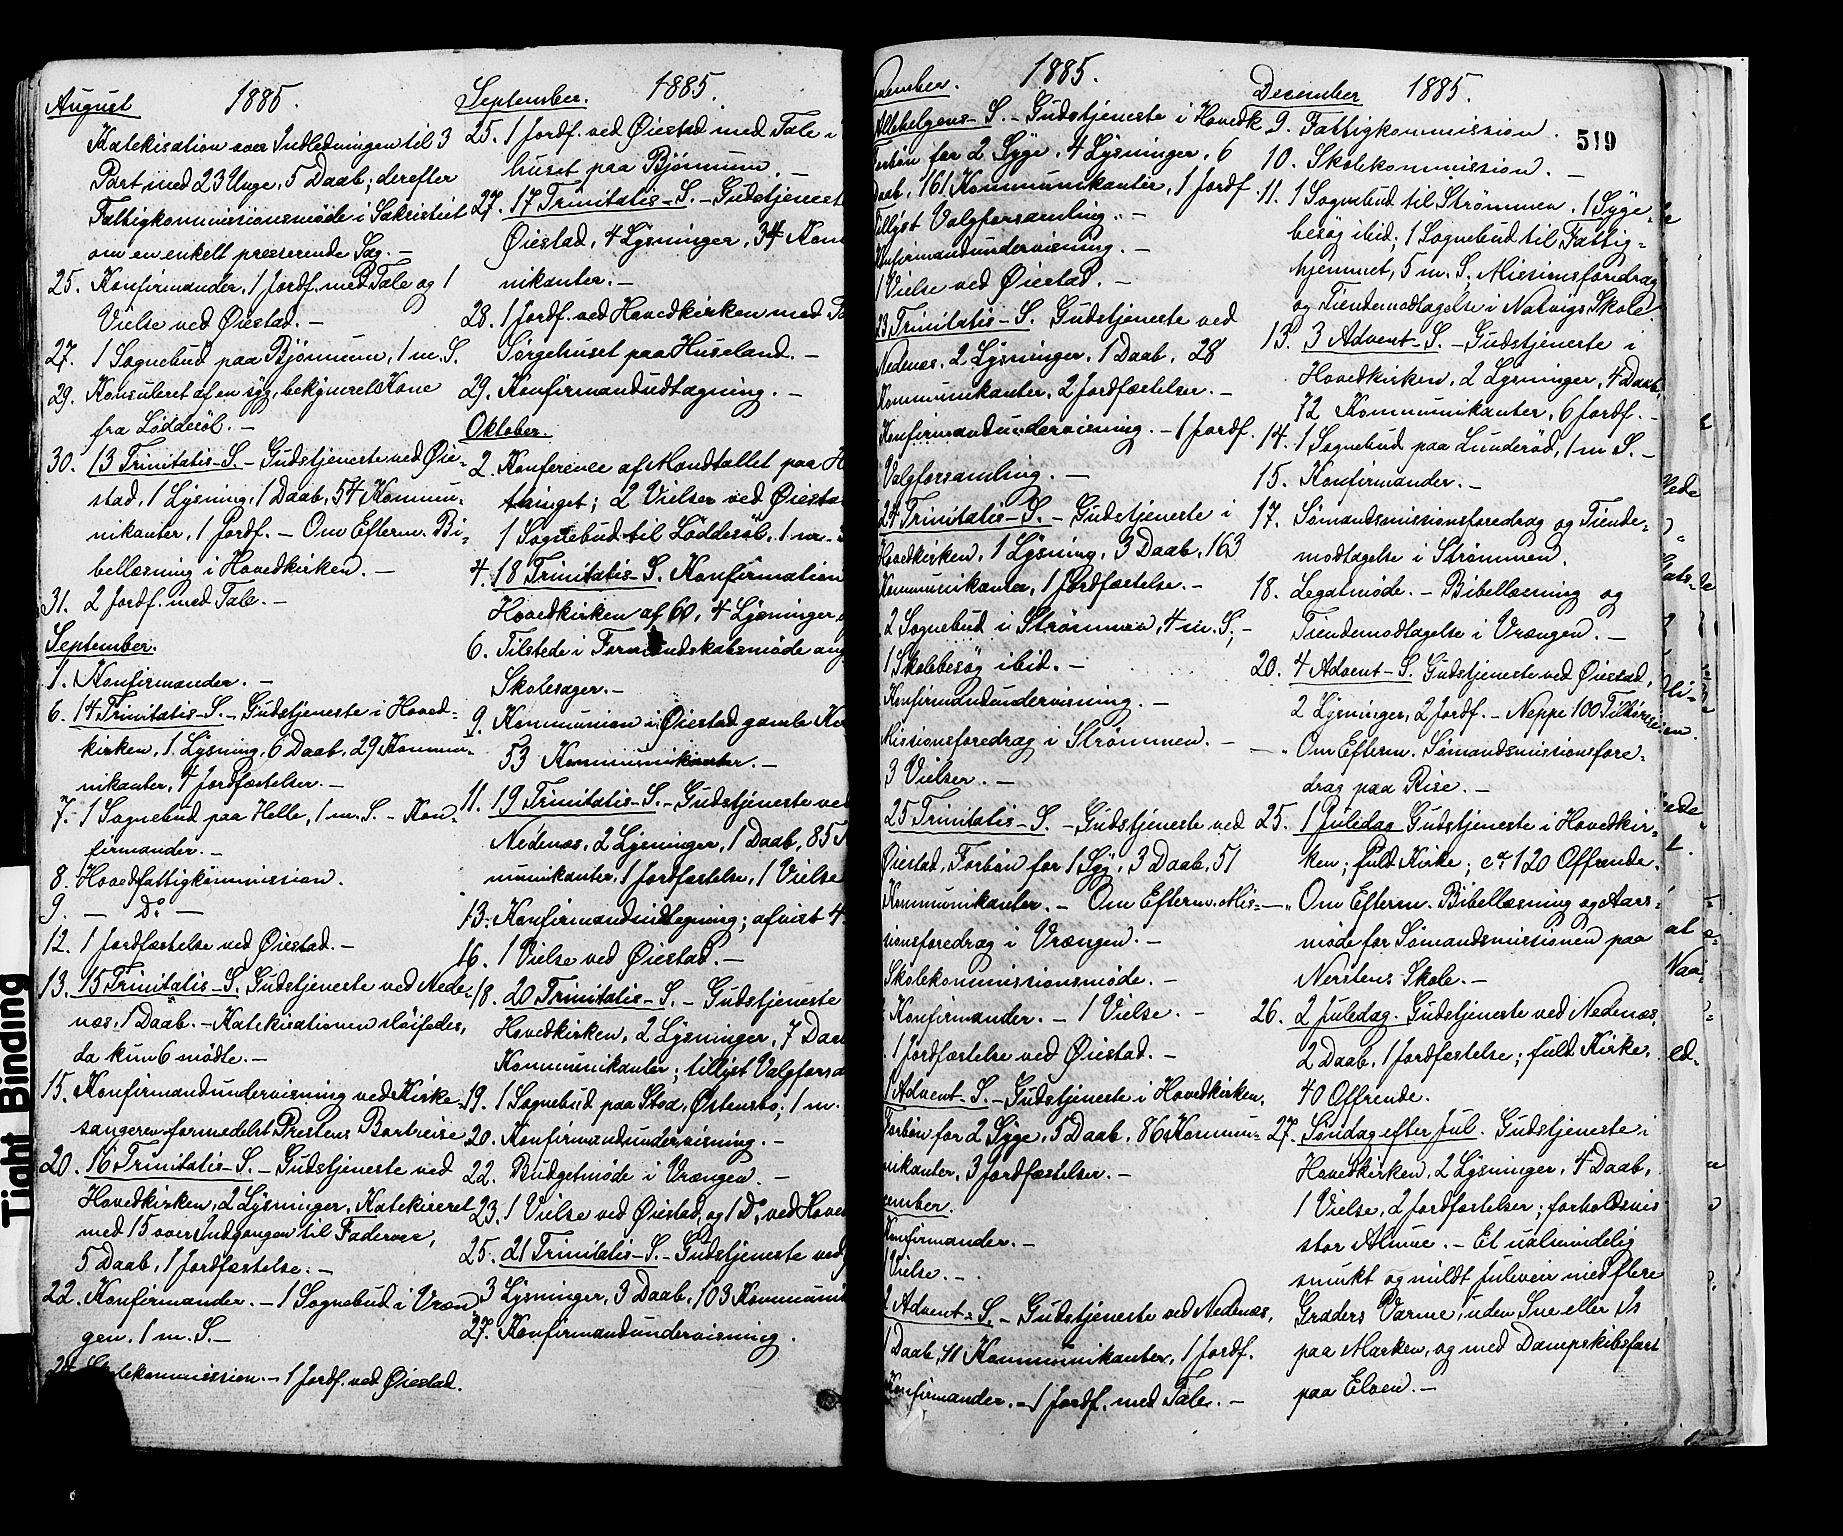 August 1885.
Katekisation over Indledningen til 3
Part med 23 Unge, 5 Daab; derefter
Fattigkommissionsmøde i Sakristiet
om en enkelt presserende Sag. –
25. Konfirmander, 1 Jordf. med Tale og 1
Vielse ved Øiestad. –
27. 1 Sognebud paa Bjønnum, 1 m. S.
29. Konsuleret af en syg, bekymret Kone
fra Løddesøl. –
30. 13 Trinitatis-S. – Gudstjeneste ved Øie-
stad, 1 Lysning, 1 Daab, 54 Kommu-
nikanter, 1 Jordf. – Om Efterm. Bi-
bellæsning i Hovedkirken. –
31. 2 Jordf. med Tale. –
September.
1. Konfirmander. –
6. 14 Trinitatis-S. – Gudstjeneste i Hoved-
kirken, 1 Lysning, 6 Daab, 29 Kommu-
nikanter, 4 Jordfæstelser. –
7. 1 Sognebud paa Helle, 1 m. S. – Kon-
firmander. –
8. Hovedfattigkommission.
9. – Do –
12. 1 Jordfæstelse ved Øiestad. –
13. 15 Trinitatis-S. Gudstjeneste ved Nede-
næs, 1 Daab. – Katekisationen sløifedes,
da kun 6 mødte. –
15. Konfirmandundervisning ved Kirke-
sangeren formedelst Prestens Bortreise
20. 16 Trinitatis-S. – Gudstjeneste ved
Hovedkirken, 2 Lysninger, Katekiseret
med 15 over Indgangen til Fadervor,
5 Daab, 1 Jordfæstelse. –
22. Konfirmander. – 1 Sognebud i Vræn-
gen, 1 m. S. –
24. Skolekommission. – 1 Jordf. ved Øiestad.
September. 1885.
25. 1 Jordf. ved Øiestad med Tale i
huset paa Bjønnum. –
27. 17 Trinitatis-S. – Gudstjenest
Øiestad, 4 Lysninger, 34 Kom
nikanter. –
28. 1 Jordf. ved Hovedkirken med Ta
Sørgehuset paa Huseland. –
29. Konfirmandudtagning. –
Oktober.
2. Konference af Mandtallet paa
tinget; 2 Vielser ved Øiesta
1 Sognebud til Løddesøl, 1 m.
4. 18 Trinitatis-S. Konfirmation
Hovedkirken af 60, 4 Lysninger
6. Tilstede i Formandskabsmøde ang
Skolesager. –
9. Kommunion i Øiestad gamle
53 Kommunikanter. –
11. 19 Trinitatis-S. – Gudstjeneste ved
Nedenæs, 2 Lysninger, 1 Daab, 85
munikanter, 1 Jordfæstelse, 1 Vielse
13. Konfirmandindtegning; afvist 4
16. 1 Vielse ved Øiestad. –
18. 20 Trinitatis-S. – Gudstjeneste
Hovedkirken, 2 Lysninger, 7 Daa
Kommunikanter; tillyst Valgforsa
19. 1 Sognebud paa Stod, Østensbo; 1 m.
20. Konfirmandundervisning. –
22. Budgetmøde i Vrængen. –
23. 1 Vielse ved Øiestad, og 1 Do ved Hoved
25. 21 Trinitatis-S. – Gudstjeneste ved
3 Lysninger, 3 Daab, 103 Kommuni
27. Konfirmandundervisning.
vember. 1885.
Allehelgens-S. – Gudstjeneste i Hovedk
Forbøn for 2 Syge, 4 Lysninger, 6
Daab, 161 Kommunikanter, 1 Jordf.
Tillyst Valgforsamling. –
Konfirmandundervisning. –
1 Vielse ved Øiestad. –
23 Trinitatis-S. Gudstjeneste ved
Nedenæs, 2 Lysninger, 1 Daab, 28
Kommunikanter, 2 Jordfæstelser. –
Konfirmandundervisning. – 1 Jordf.
Valgforsamling. –
24 Trinitatis-S. – Gudstjeneste i
Hovedkirken, 1 Lysning, 3 Daab, 163
Kommunikanter, 1 Jordfæstelse. –
2 Sognebud i Strømmen, 4 m. S. –
1 Skolebesøg ibid. –
Konfirmandundervisning. –
Missionsforedrag i Strømmen. –
3 Vielser. –
25 Trinitatis-S. – Gudstjeneste ved
Øiestad, Forbøn for 1 Syg, 3 Daab, 51
Kommunikanter. – Om Efterm. Mis-
sionsforedrag i Vrængen. –
Skolekommissionsmøde. –
Konfirmander. – 1 Vielse. –
1 Jordfæstelse ved Øiestad. –
1 Advent-S. – Gudstjeneste i Hovedkirken,
Forbøn for 2 Syge, 5 Daab, 86 Kommu-
nikanter, 3 Jordfæstelser. –
cember.
Konfirmander. –
Vielse. –
2 Advent-S. – Gudstjeneste ved Nedenæs,
1 Daab, 41 Kommunikanter, 1 Jordf.
Konfirmander. – 1 Jordf. med Tale. –
December 1885.
519
9. Fattigkommission.
10. Skolekommission. –
11. 1 Sognebud til Strømmen, 1 Syge-
besøg ibid; 1 Sognebud til Fattig-
hjemmet, 5 m. S. Missionsforedrag
og Tiendemodtagelse i Natvigs Skole
13. 3 Advent-S. – Gudstjeneste i
Hovedkirken, 2 Lysninger, 4 Daab,
72 Kommunikanter, 6 Jordf. –
14. 1 Sognebud paa Lunderød, 1 m S. –
15. Konfirmander. –
17. Sømandsmissionsforedrag og Tiende-
modtagelse i Strømmen.
18. Legatmøde. – Bibellæsning og
Tiendemodtagelse i Vrængen. –
20. 4 Advent-S. Gudstjeneste ved Øiestad,
2 Lysninger, 2 Jordf. – Neppe 100 Tilhørere
– „ Om Efterm. Sømandsmissionsfore-
drag paa Rise. –
25. 1 Juledag Gudstjeneste i Hovedkir-
ken; fuld Kirke; ca 120 Offrende.
– „ Om Efterm. Bibellæsning og Aars-
møde for Sømandsmissionen paa
Nerstens Skole. –
26. 2 Juledag. Gudstjeneste ved Nedenæs,
2 Daab, 1 Jordfæstelse; fuld Kirke,
40 Offrende.
27. Søndag efter Jul. Gudstjeneste i
Hovedkirken, 2 Lysninger, 4 Daab,
1 Vielse, 2 Jordfæstelser; forholdsvis
stor Almue. – Et ualmindelig
smukt og mildt Juleveir med flere
Graders Varme, uden Sne eller Is
paa Marken, og med Dampskibsfart
paa Elven. –
Tight Binding